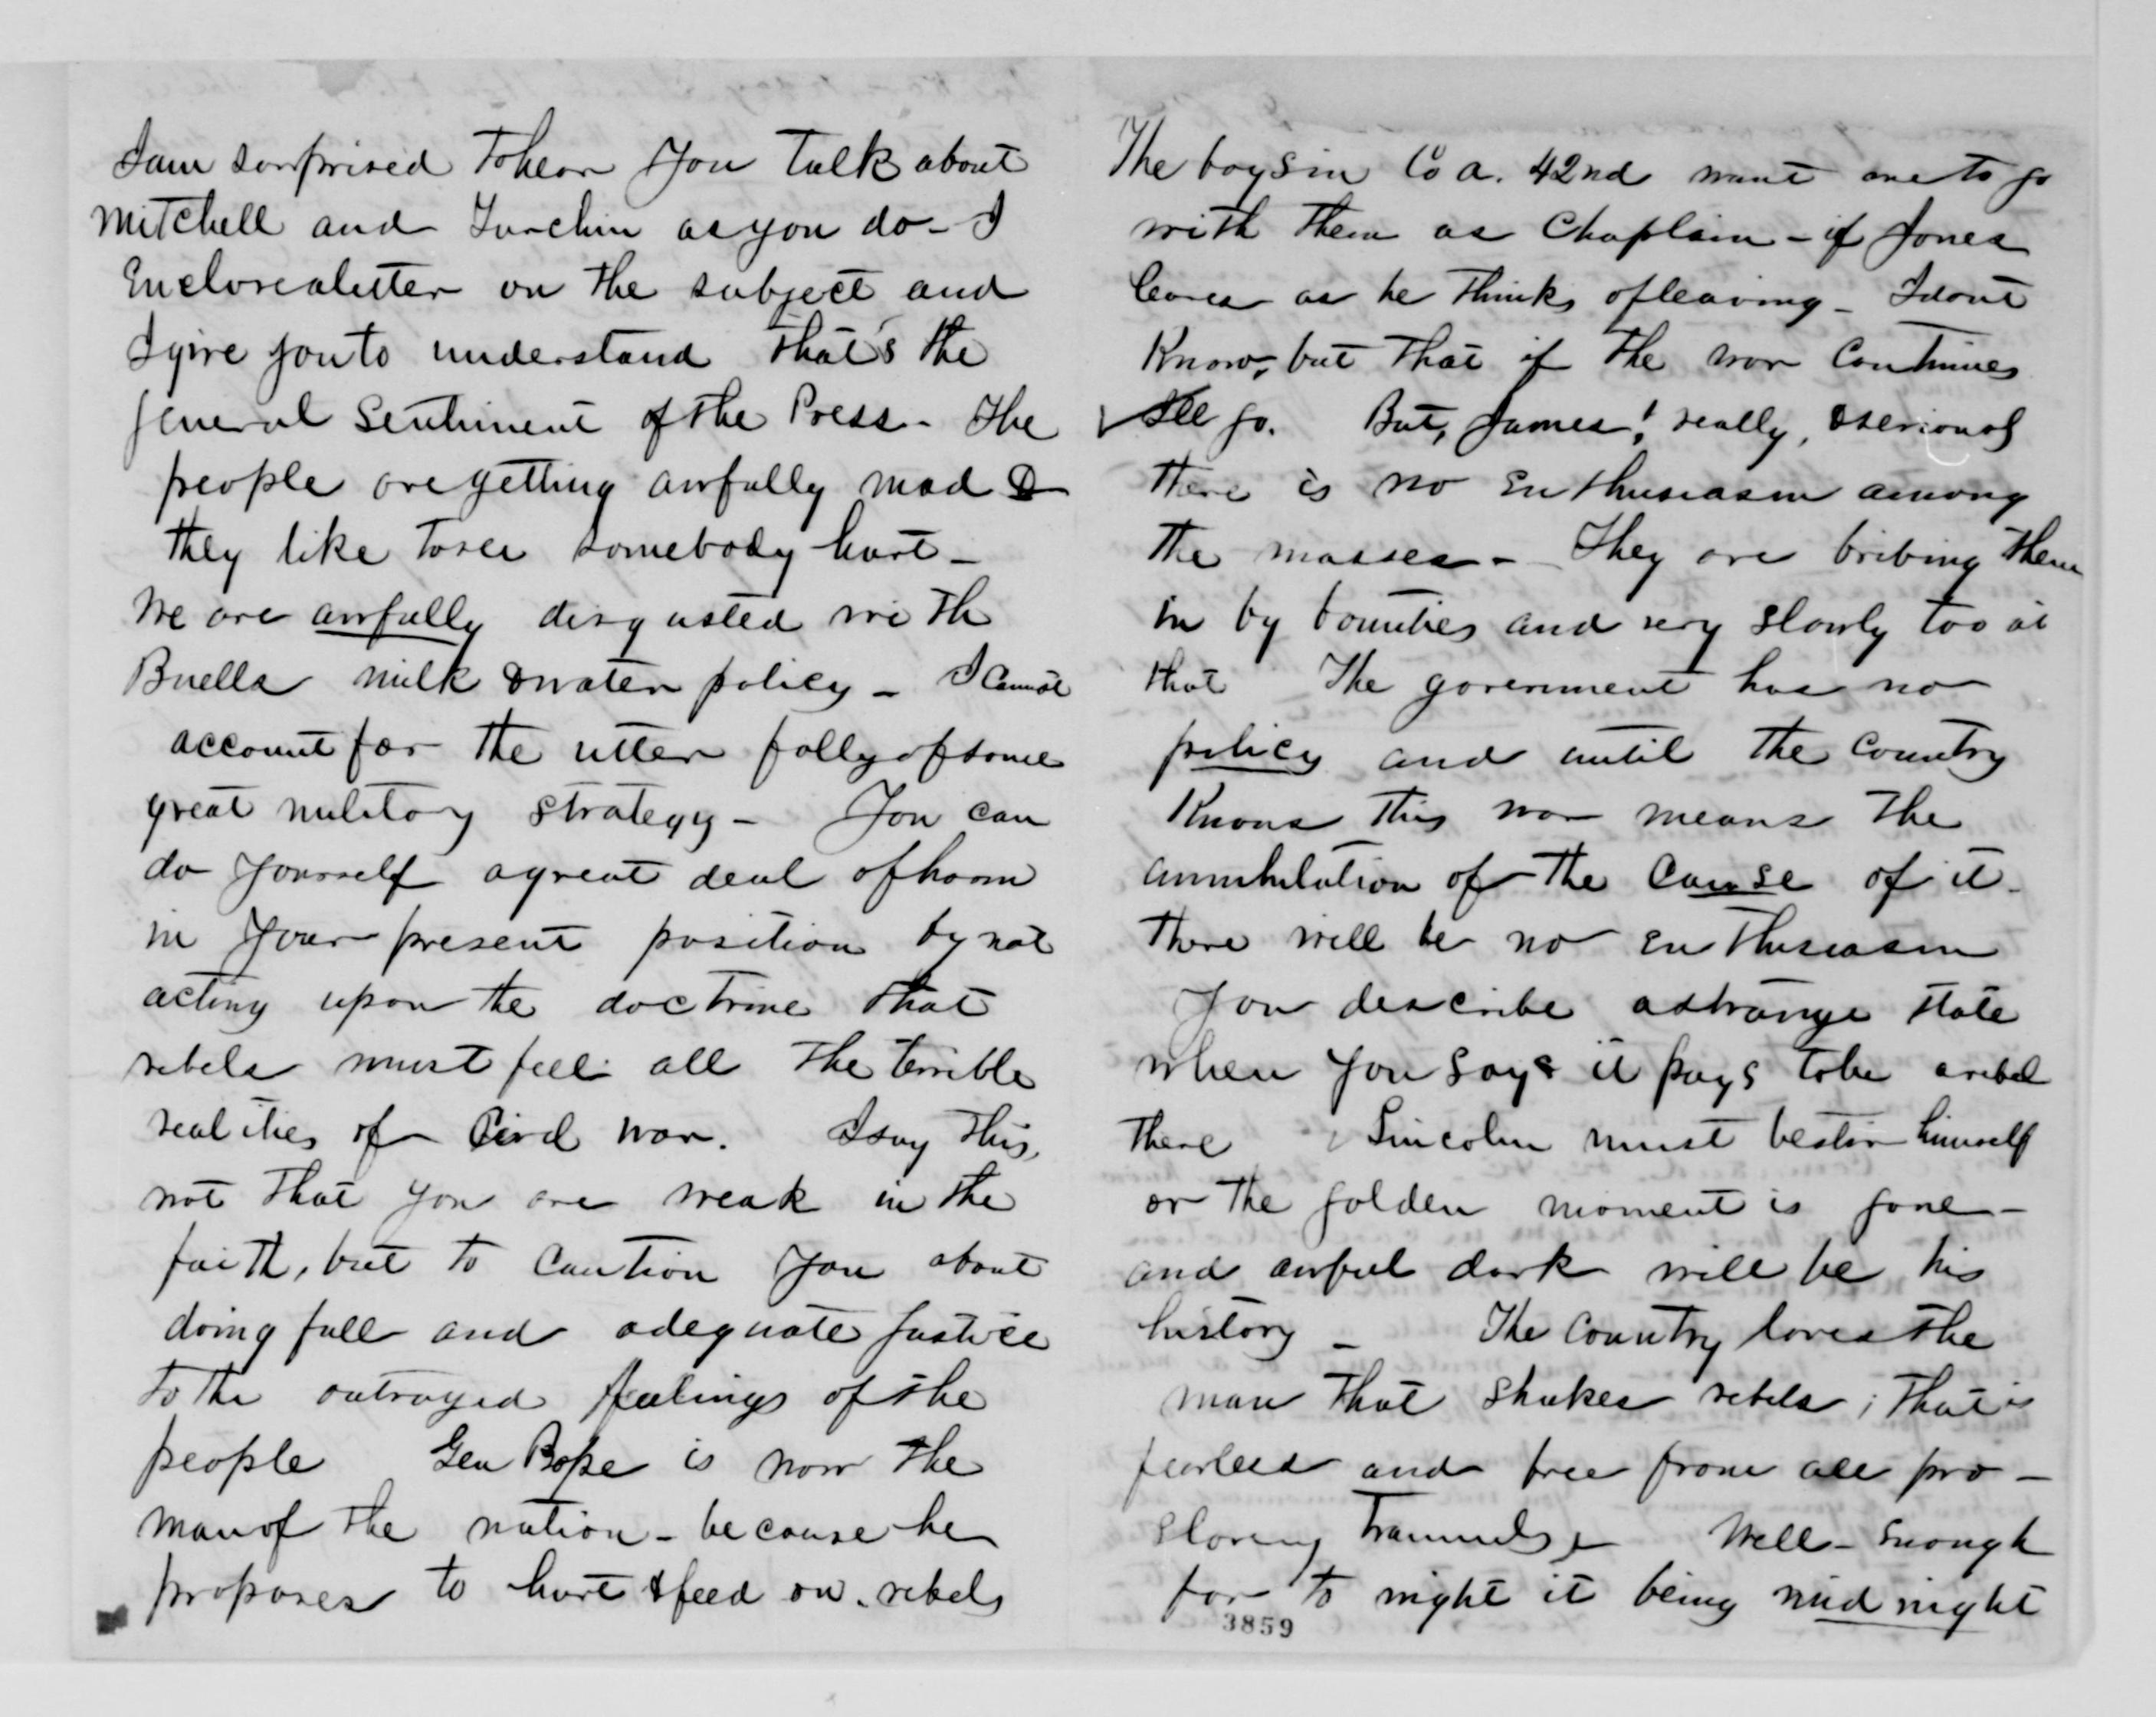 I am surprised to hear you talk about
Mitchell and Turchin as you do - I
Enclose a letter on the subject and
I give you to understand that's the
general Sentiment of the Press - The
people are getting awfully mad &
they like to see somebody hurt -
We are awfully disgusted with
Buells milk & water policy - I cannot
account for the utter folly of some
great military strategy - You can
do yourself a great deal of harm
in your present position by not
acting upon the doctrine that
rebels must feel all the terrible
realities of Civil war. I say this,
not that you are weak in the
faith, but to caution you about
doing full and adequate justice
to the outraged feelings of the
people Gen Pope is now the
man of the nation - because he
proposes to hurt & feed on rebels
The boys in Co A. 42nd want me to go
with them as Chaplain - if Jones
leaves as he thinks of leaving - I dont
Know, but that if the war Continues
Ill go. But, James! really, & seriously
there is no Enthusiasm among
the masses - They are bribing them
in by bounties and very slowly too at
that The government has no
policy and until the country
Knows this war means the
annihilation of the cause of it -
there will be no Enthusiasm
You describe a strange state
when you say it pays to be a rebel
there Lincoln must bestir himself
or the golden moment is gone -
and awful dark will be his
history - The Country loves the
man that shakes rebels ; that is
fearless and free from all pro -
slavery trammels - Well - Enough
for to night it being midnight
3859